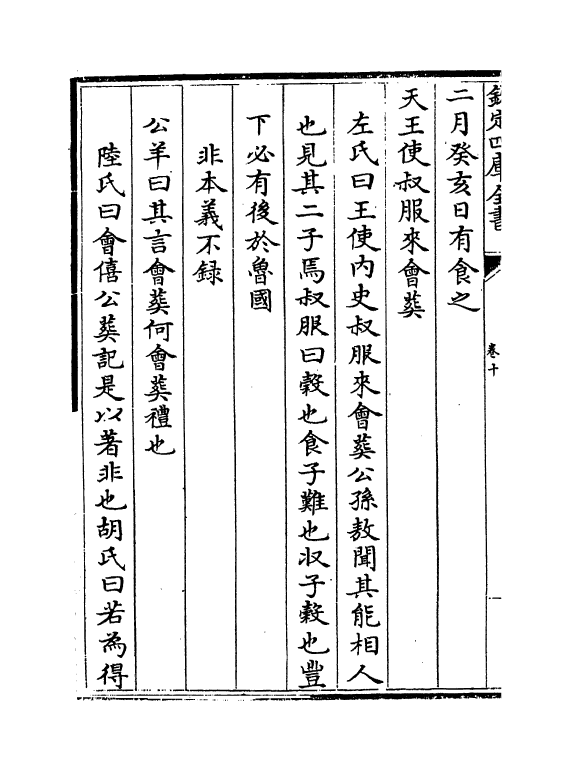 欽定四庫全書
卷十
二月癸亥日有食之
天王使叔服來會葬
左氏曰王使內史叔服來會葬公孫敖聞其能相人
也見其二子焉叔服曰穀也食子難也收子穀也豐
下必有後於魯國
非本義不録
公羊曰其言會葬何會葬禮也
陸氏曰會僖公葬記是以著非也胡氏曰若為得